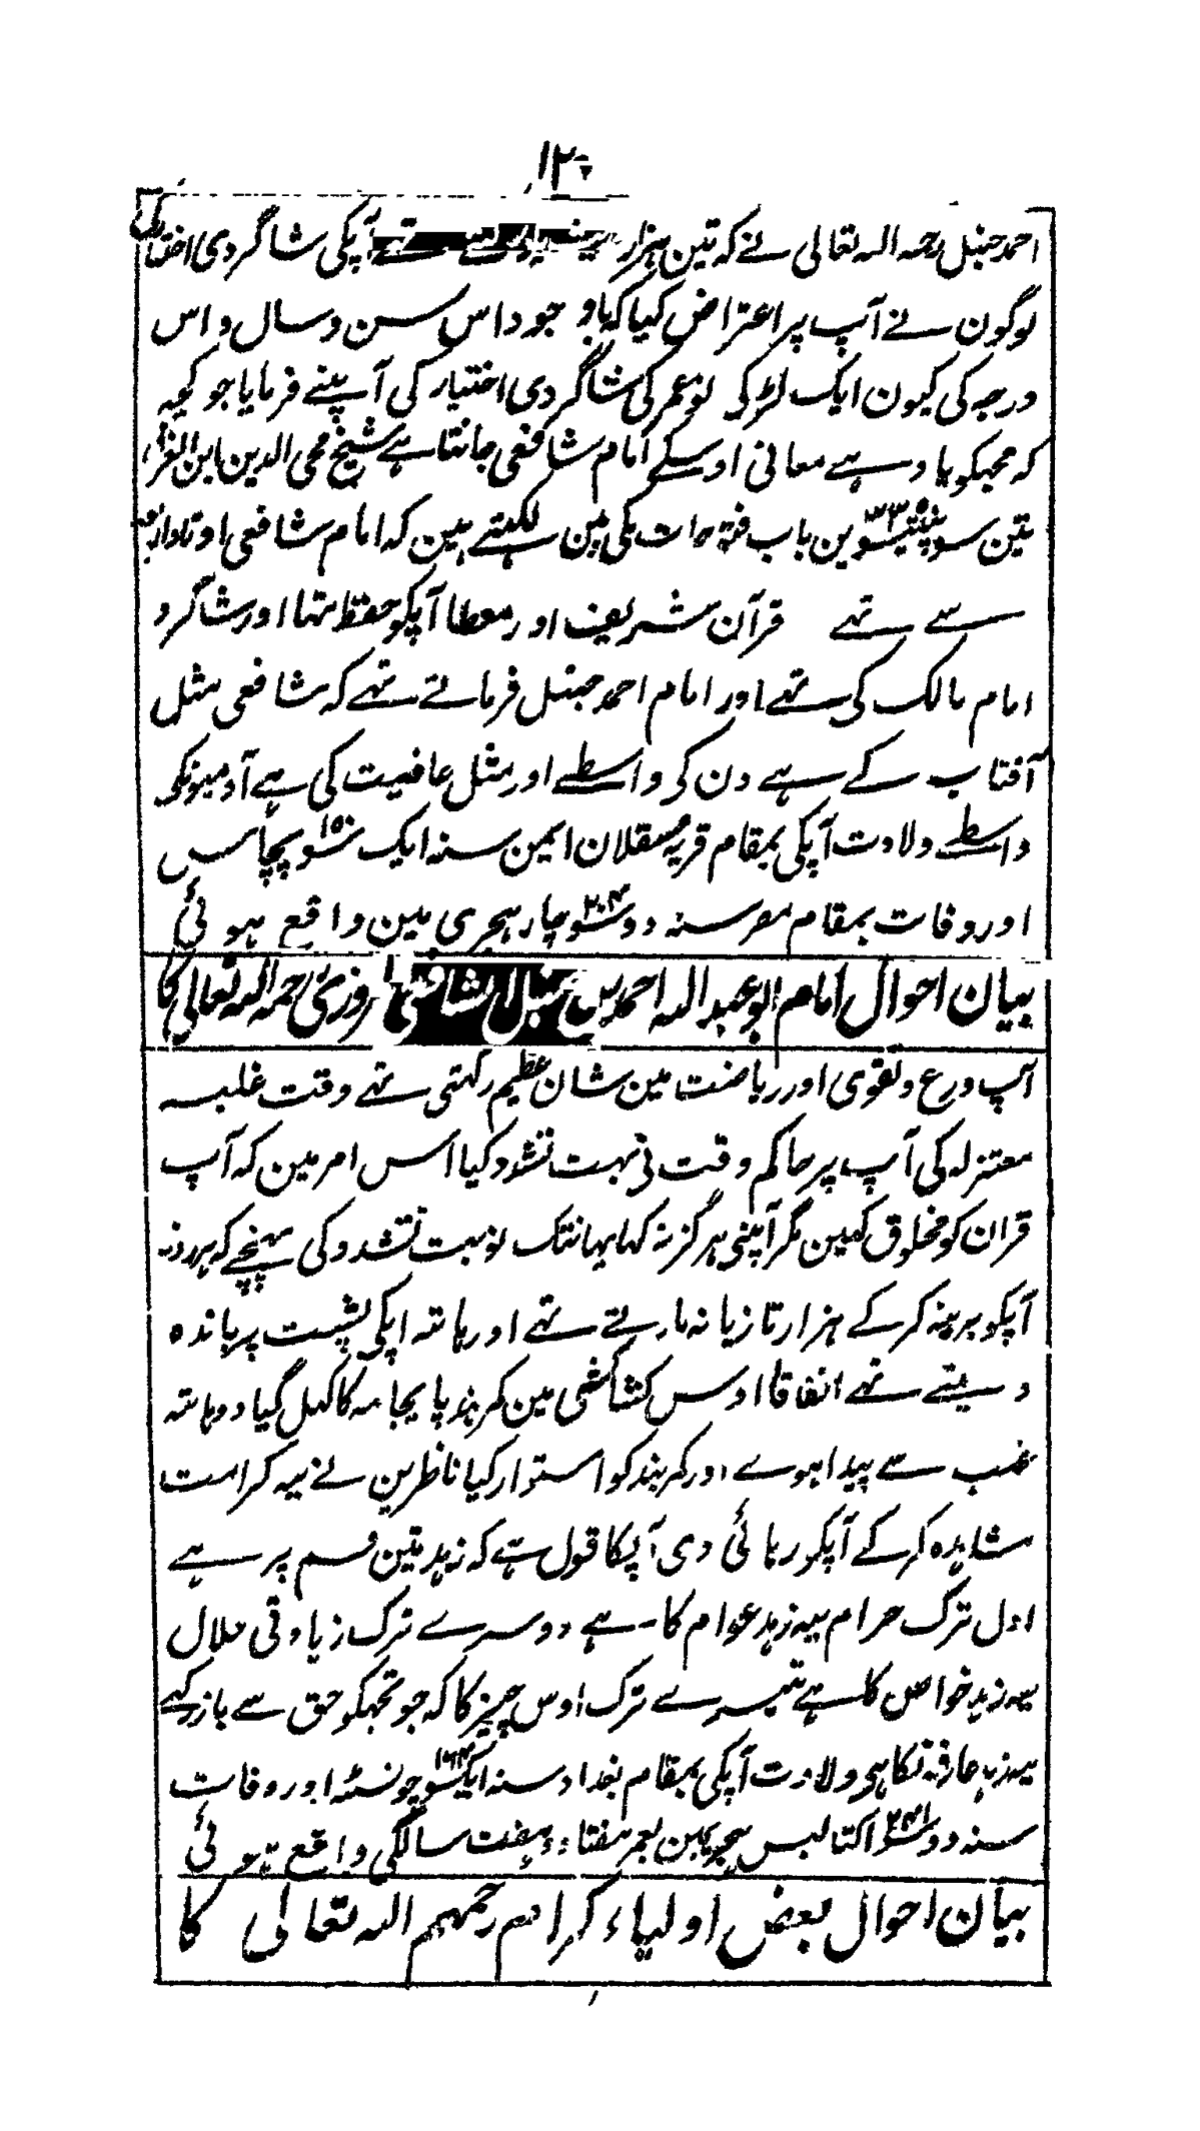 ۱۲۰
احمد حنبل رحمہ اللہ تعالی نے کہ تین ہزار آپکی شاگردی اختیار کی
لوگون نے آپ پر اعتراض کیا کہ با وجود اس سن و سال و اس
درجہ کی کیون ایک لڑکے نو عمر کی شاگردی اختیار کی آپنے فرمایا جو کچہ
کہ مجہکو یاد ہے معانی اوسکے امام شافعی جانتا ہے شیخ محی الدین ابن العربی
تین سو پینتیسوین باب فتوحات مکی مین لکہتے ہین کہ امام شافعی اوتاد اربعہ
سے تہے قرآن شریف اور موطا آپکو حفظ تہا اور شاگرد
امام مالک کی تہے اور امام احمد حنبل فرماتے تہے کہ شافعی مثل
آفتاب کے ہے دن کی واسطے اور مثل عافیت کی ہے آدمیونکو
واسطے ولادت آپکی بمقام قریہ عسقلان یمن سنہ ایک سو ۱۵۰ پچاس
اور وفات بمقام مصر سنہ دو سو ۲۰۴ چار ہجری مین واقع ہوئی
بیان احوال امام ابو عبد اللہ احمد بن حنبل مروزی رحمہ اللہ تعالی کا
آپ ورع و تقوی اور ریاضت مین شان عظیم رکہتی تہے وقت غلبہ
معتزلہ کی آپ پر حاکم وقت نی بہت تشدد کیا اس امر مین کہ آپ
قران کو مخلوق کہین مگر آپنی ہرگز نہ کہا یہانتک نوبت تشدد کی پہنچے کہ ہر روز
آپکو برہنہ کر کے ہزار تازیانہ مارتے تہے اور ہاتہ اپکی پشت پر باندہ
دیتے تہے اتفاقا اوس کشاکشی مین کمربند پایجامہ کا کہل گیا دو ہاتہ
غیب سے پیدا ہوے اور کمربند کو استوار کیا ناظرین نے یہ کرامت
مشاہدہ کر کے آپکو رہائی دی آپکا قول ہے کہ زہد تین قسم پر ہے
اول ترک حرام یہ زہد عوام کا ہے دوسرے ترک زیادتی حلال
یہ زہد خواص کا ہے تیسرے ترک اوس چیز کا کہ جو تجہکو حق سے باز رکہے
یہ زہد عارفونکا ہی ولادت آپکی بمقام بغداد سنہ ایکسو ۱۶۴ چونسٹہ اور وفات
سنہ دو سو ۲۴۱ اکتالیس ہجریمین بعمر ہفتاد و ہفت سالگی واقع ہوئی
بیان احوال بعض اولیاء کرام رحمہم اللہ تعالی کا